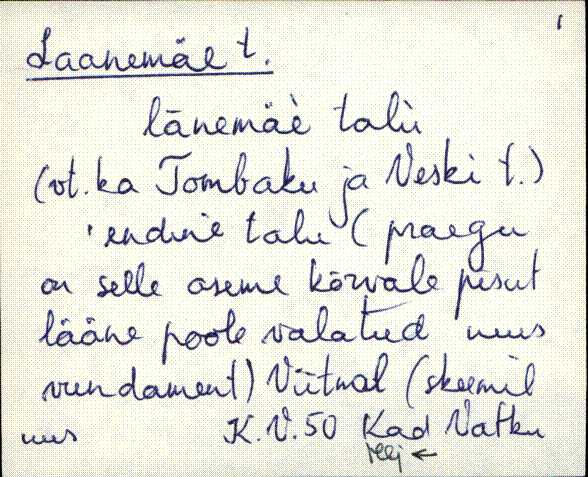 1
Laanemäe t.
lānemäè talù
(vt. ka Tombaku ja Veski t.)
'endine talu (praegu
on selle aseme kõrvale pisut
lääne poole valatud uus
vundament) Viitnal (skeemil
uus K.V. 50 Kad Vatku
←